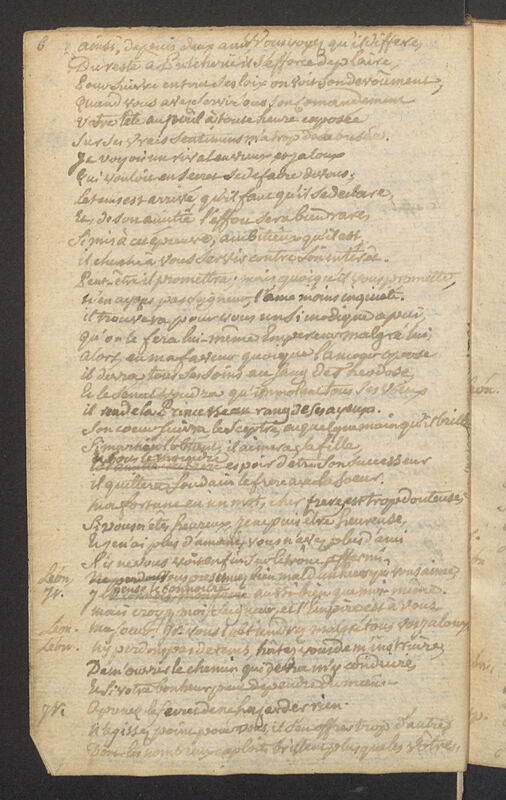 6 ainsi, depuis deux ans vous voyez qu'il differe,
Du reste à Pulcherie il s'efforce de plaire,
Pour suivre en tout ses loix on voit son devoüement,
Quand vous avez servi sous son comandement
Votre tête au peril à toute heure exposée
Sur ses vrais sentimens m'a trop desabusée.
Je voyois un rival envieux et jaloux
Qui vouloit en secret se defaire de vous:
le tems est arrivé qu'il faut qu'il se declare,
Et de son amitié l'effort sera bien rare,
Si mis à ce épreuve, ambitieux qu'il est
il cherche à vous servir contre son interêt.
Peut-être il promettra; mais quoiqu'il vous promette,
n'en ayez pas Seigneur, l'ame moins inquiete.
il trouvera pour vous un si modique apui,
qu'on le fera lui-même Empereur malgré lui,
Alors en ma faveur quoique l'amour opose
il devra tous ses soins au sang de Theodose,
Et le Senat voudra qu'immolant tous ses voeux
il rende la Princesse au rang de ses ayeux.
Son coeur suivra le Sceptre, en quelque main qu'il brille
Si Martian l'obtient, il aimera sa fille
espoir d'être son successeur
il quittera soudain le frere avec la soeur.
ma fortune en un mot, cher frere, est trop douteuse;
Si vous n'êtes heureux, je ne puis être heureuse,
Et je n'ai plus d'amant, vous n'avez plus d'ami
S'il ne vous voit enfin sur le trône affermi.
Léon. Vous presumez bien mal d'un heros qui vous aime,
Ir. Je pense le connoitre aussi bien que moi-même
mais croyez moi Seigneur, et l'Empire est à vous
Leon. ma soeur! Ir. vous l'obtiendrez malgré tous vos jaloux
Léon. n'y perdons pas de tems, hâtez vous de m'instruire,
Decouvrez le chemin qui devra m'y conduire,
Et si votre bonheur peut dependre du mien...
Ir. Aprenez le secret de ne hazarder rien.
N'agissez point pour vous, il s'en offre trop d'autres
Dont les nombreux exploits brillent plus que les vôtres,